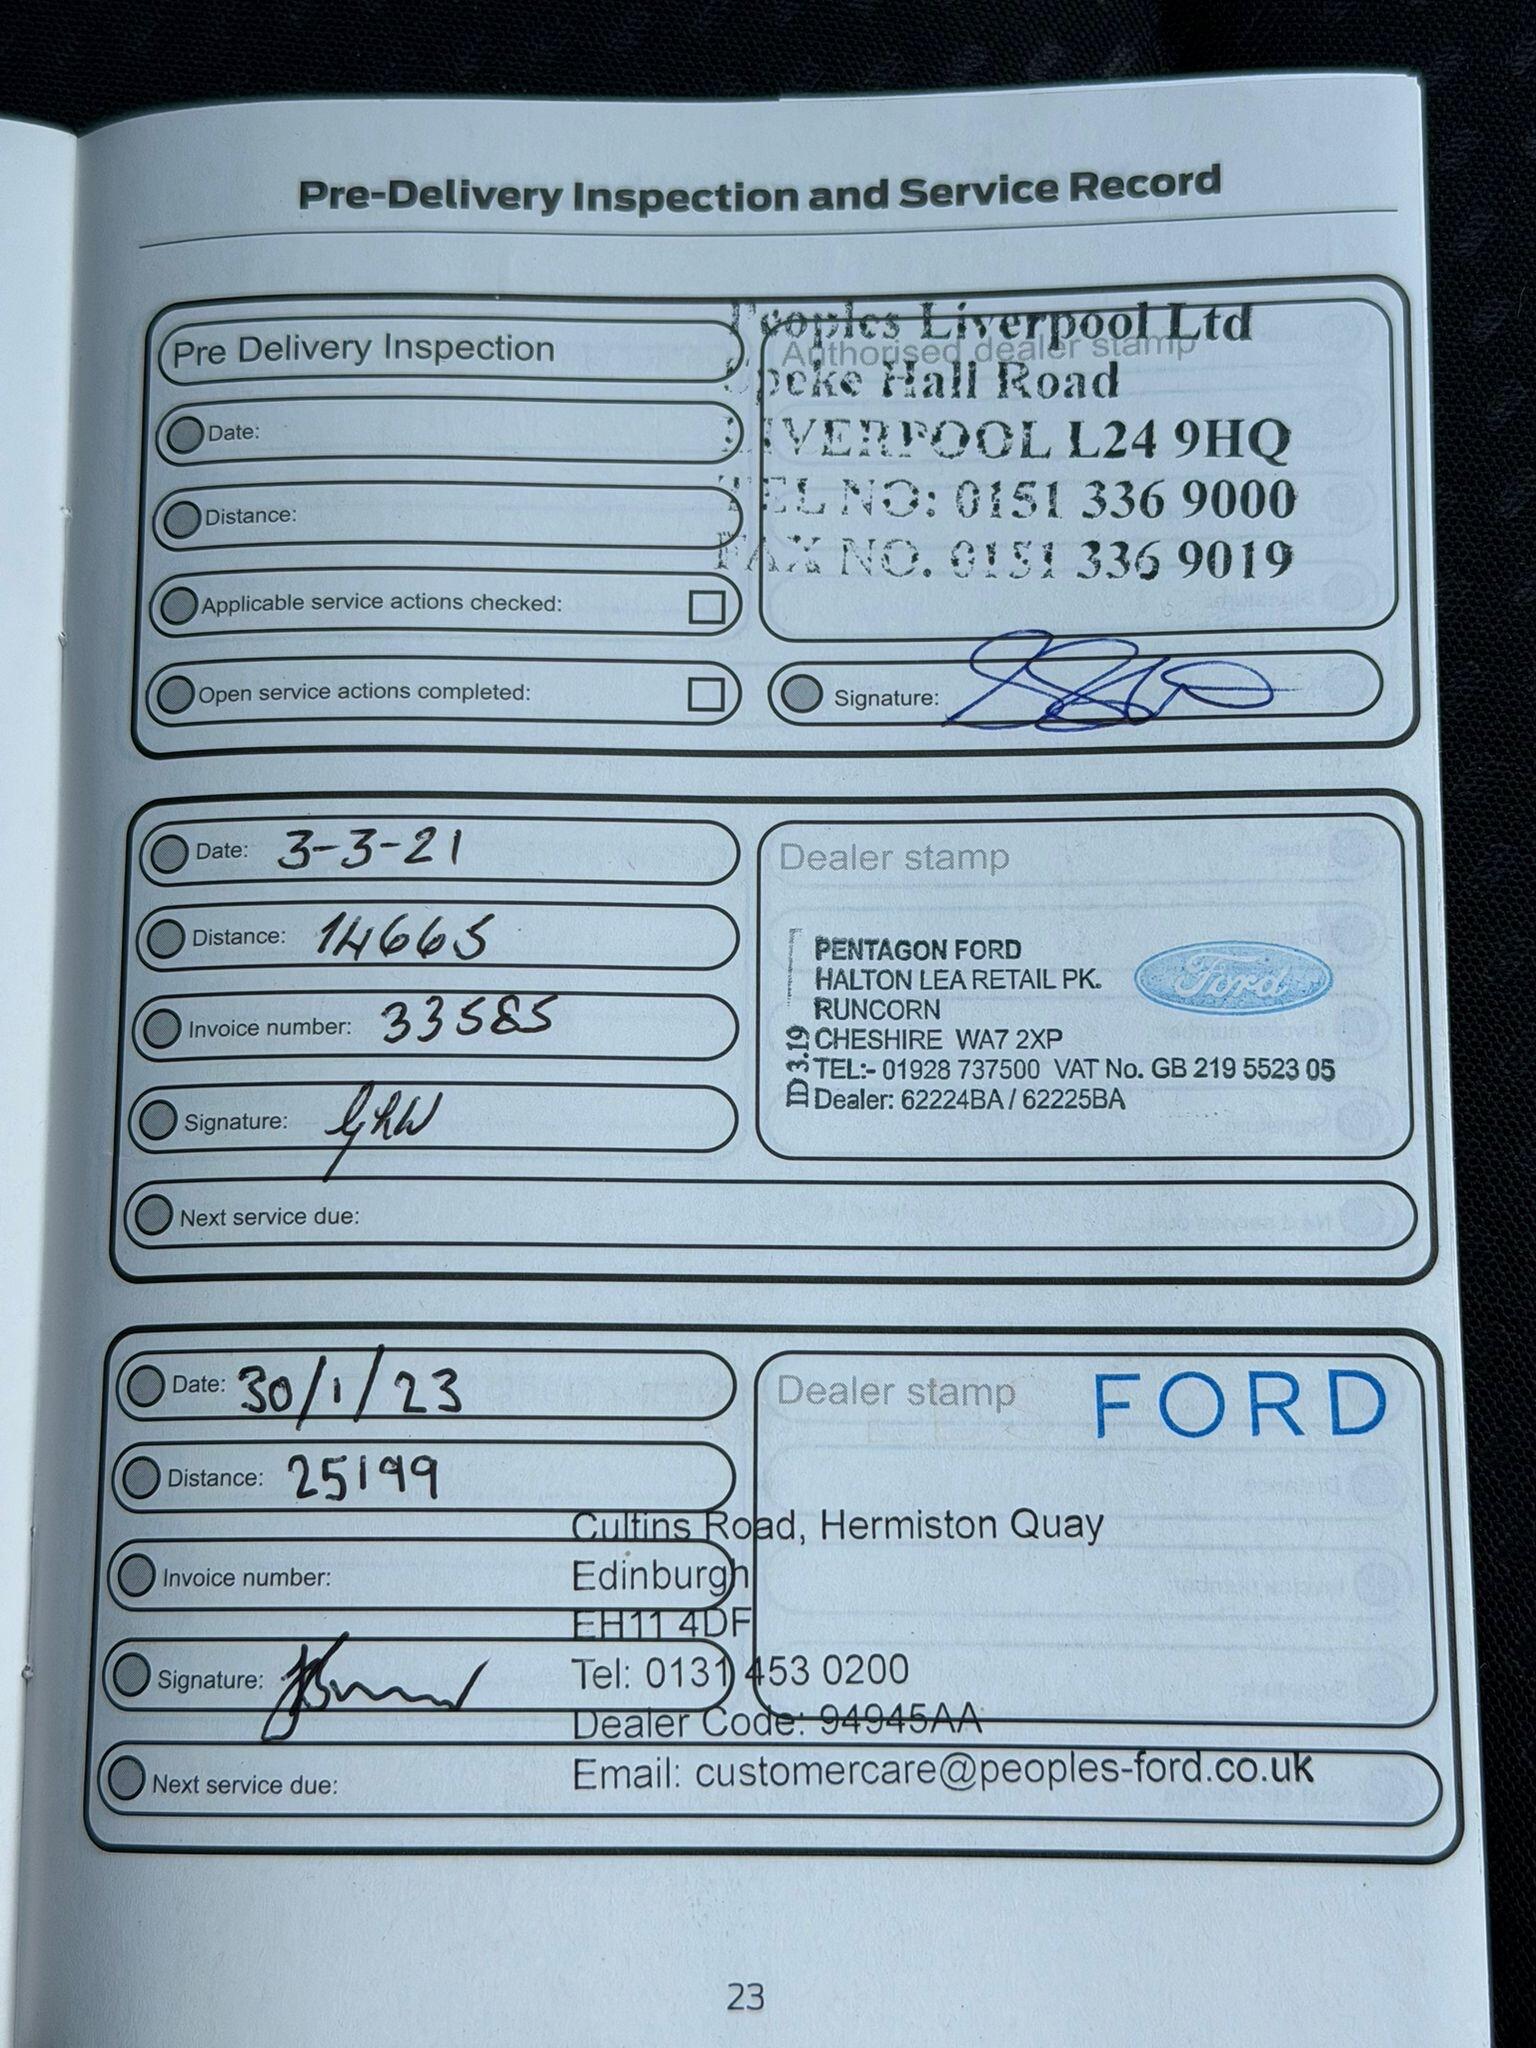 Pre-Delivery Inspection and Service Record
Pre Delivery Inspection
Authorised dealer stamp
Peoples Liverpool Ltd
Speke Hall Road
LIVERPOOL L24 9HQ
TEL NO: 0151 336 9000
FAX NO. 0151 336 9019
Date:
Distance:
Applicable service actions checked:
Open service actions completed:
Signature:
Date: 3-3-21
Distance: 14665
Invoice number: 33585
Signature:
Next service due:
Dealer stamp
PENTAGON FORD
HALTON LEA RETAIL PK.
RUNCORN
CHESHIRE WA7 2XP
TEL:- 01928 737500 VAT No. GB 219 5523 05
Dealer: 62224BA / 62225BA
ID 3.19
Ford
Date: 30/1/23
Distance: 25199
Invoice number:
Signature:
Next service due:
Dealer stamp
FORD
Cultins Road, Hermiston Quay
Edinburgh
EH11 4DF
Tel: 0131 453 0200
Dealer Code: 94945AA
Email: customercare@peoples-ford.co.uk
23